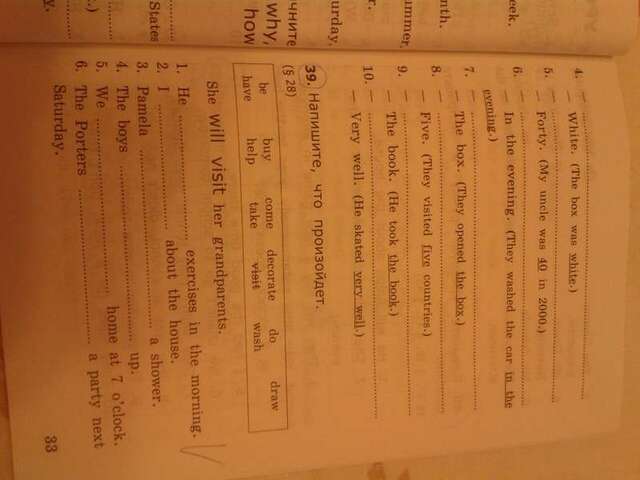 eek.
nth.
ummer
r.
turday.
чните
why,
how
States
...)
y.
4. — ........
— White. (The box was white.)
5. — ........
— Forty. (My uncle was 40 in 2000.)
6. — ........
— In the evening. (They washed the car in the
evening.)
7. — ........
— The box. (They opened the box.)
8. — ........
— Five. (They visited five countries.)
9. — ........
— The book. (He took the book.)
10. — ........
— Very well. (He skated very well.)
39. Напишите, что произойдет.
(§ 28)
be buy come decorate do draw
have help take visit wash
She will visit her grandparents.
1. He ........ exercises in the morning.
2. I ........ about the house.
3. Pamela ........ a shower.
4. The boys ........ up.
5. We ........ home at 7 o'clock.
6. The Porters ........ a party next
Saturday.
33